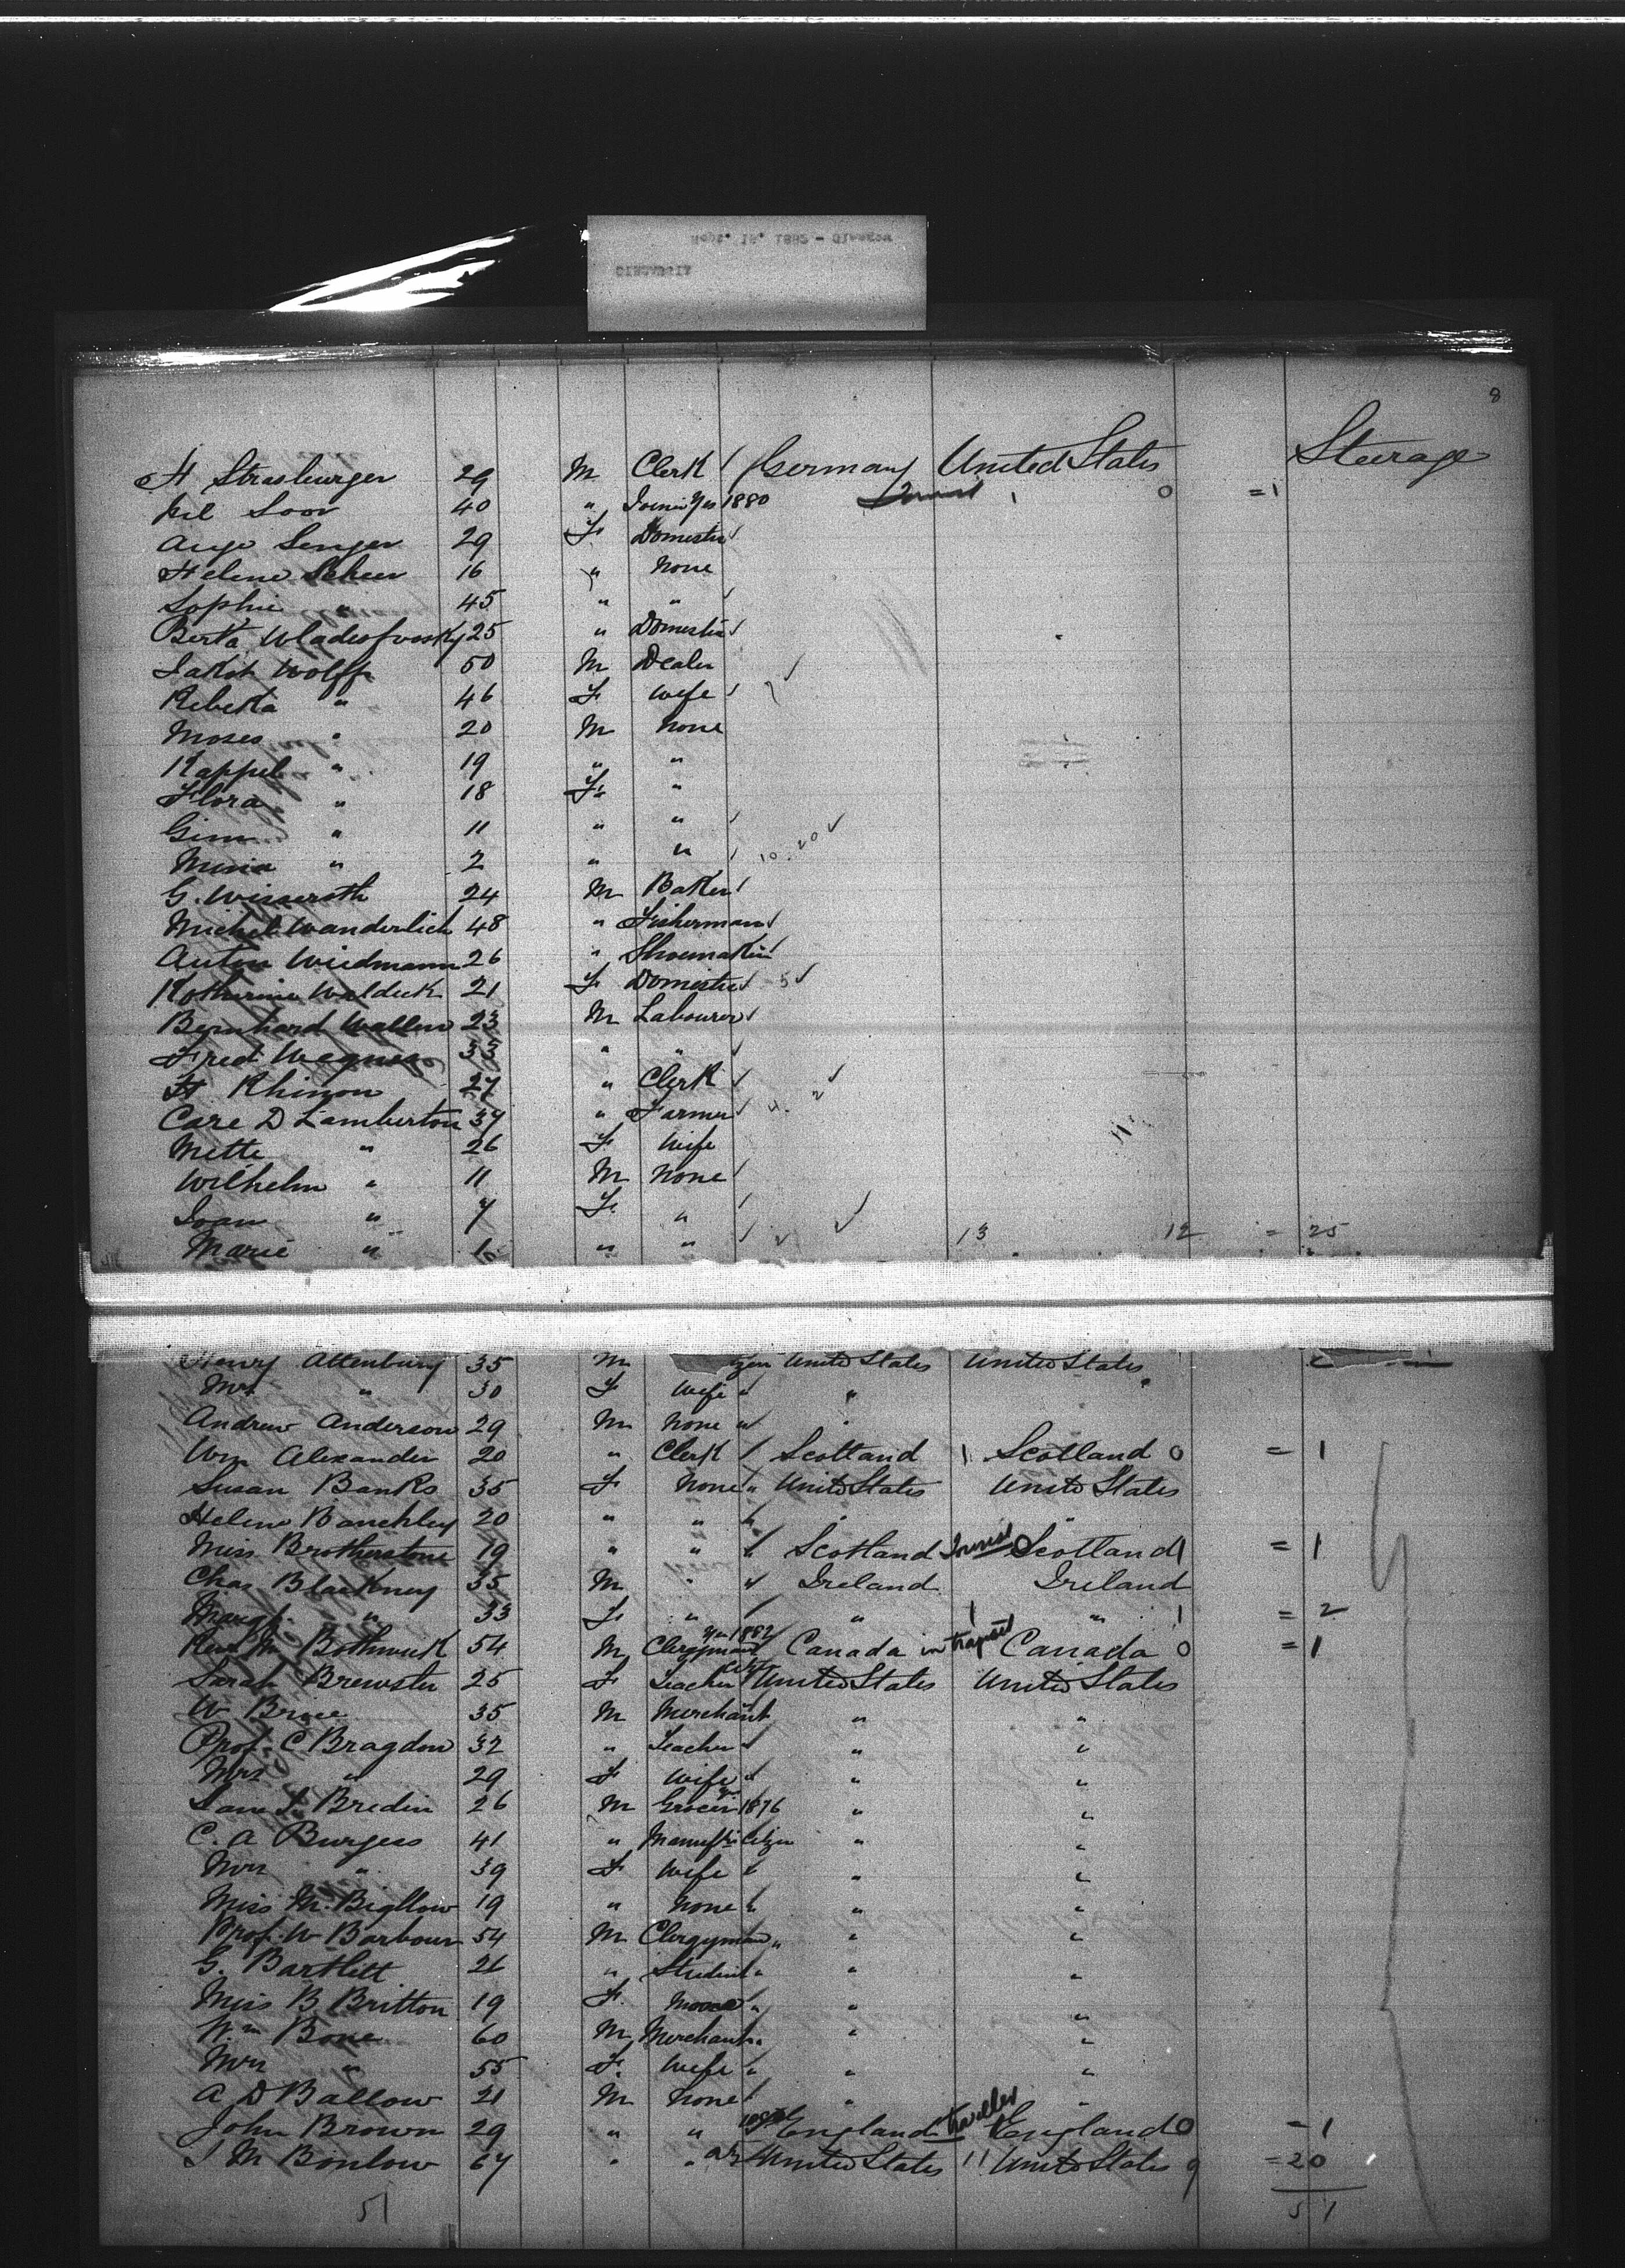 Sept. 18, 1882 - Glasgow
CIRCASSIA
8
H Strasburger 29 M Clerk Germany United States Steerage
40 " 1880 0 =1
Senger 29 F Domestic
Helene Scheer 16 " None
Sophie " 45 " "
Berta 25 " Domestic
Jakob Wolff 50 M Dealer
Rebeka " 46 F Wife
Moses " 20 M None
Kappel " 19 " "
Flora " 18 F "
" 11 " "
" 2 " "
G. 24 M Baker
Michel Wanderlich 48 " Fisherman
Anton Wiedmann 26 " Shoemaker
Katherine Waldeck 21 F Domestic 5
Bernhard Wallen 23 M Labourer
Fred Wegner 33 " "
H Rhinon 27 " Clerk
Care D Lamberton 37 " Farmer
Mette " 26 F Wife
Wilhelm " 11 M None
Joan " 7 F "
Marie " " " 13 12 = 25
Henry Attenbury 35 M United States United States
Mrs " 30 F Wife " "
Andrew Anderson 29 M None " "
Wm Alexander 20 " Clerk Scotland 1 Scotland 0 = 1
Susan Banks 35 F None " United States United States
Helene Banchley 20 " " " "
Miss Brotherstone 19 " " " Scotland Scotland 1 = 1
Chas Blackney 35 M " " Ireland Ireland
Margt " 33 F " " 1 " 1 = 2
Revd Wm Bothwick 54 M Clergyman 1882 Canada in transit Canada 0 = 1
Sarah Brewster 25 F Teacher United States United States
W Brice 35 M Merchant " "
Prof. C. Bragdon 32 " Teacher " " "
Mrs " 29 F Wife " " "
Bredin 26 M Grocer 1876 " "
C. A Burgess 41 " Citizen " "
Mrs " 39 F Wife " " "
Miss M. Bigllow 19 " None " " "
Prof. W Barbour 54 M Clergyman " " "
G. Bartlett 26 " Student " " "
Miss B Britton 19 F. None " " "
Wm Bone 60 M Merchant " " "
Mrs " 55 F. Wife " " "
A D Ballow 21 M None " "
John Brown 29 " " England traveller England 0 = 1
J M Bonlow 67 " " United States 11 United States 9 = 20
51 51